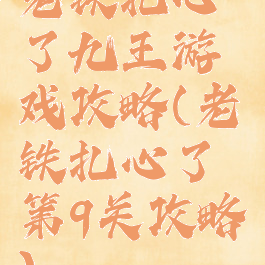 老铁扎心
了九王游
戏攻略(老
铁扎心了
第9关攻略
)